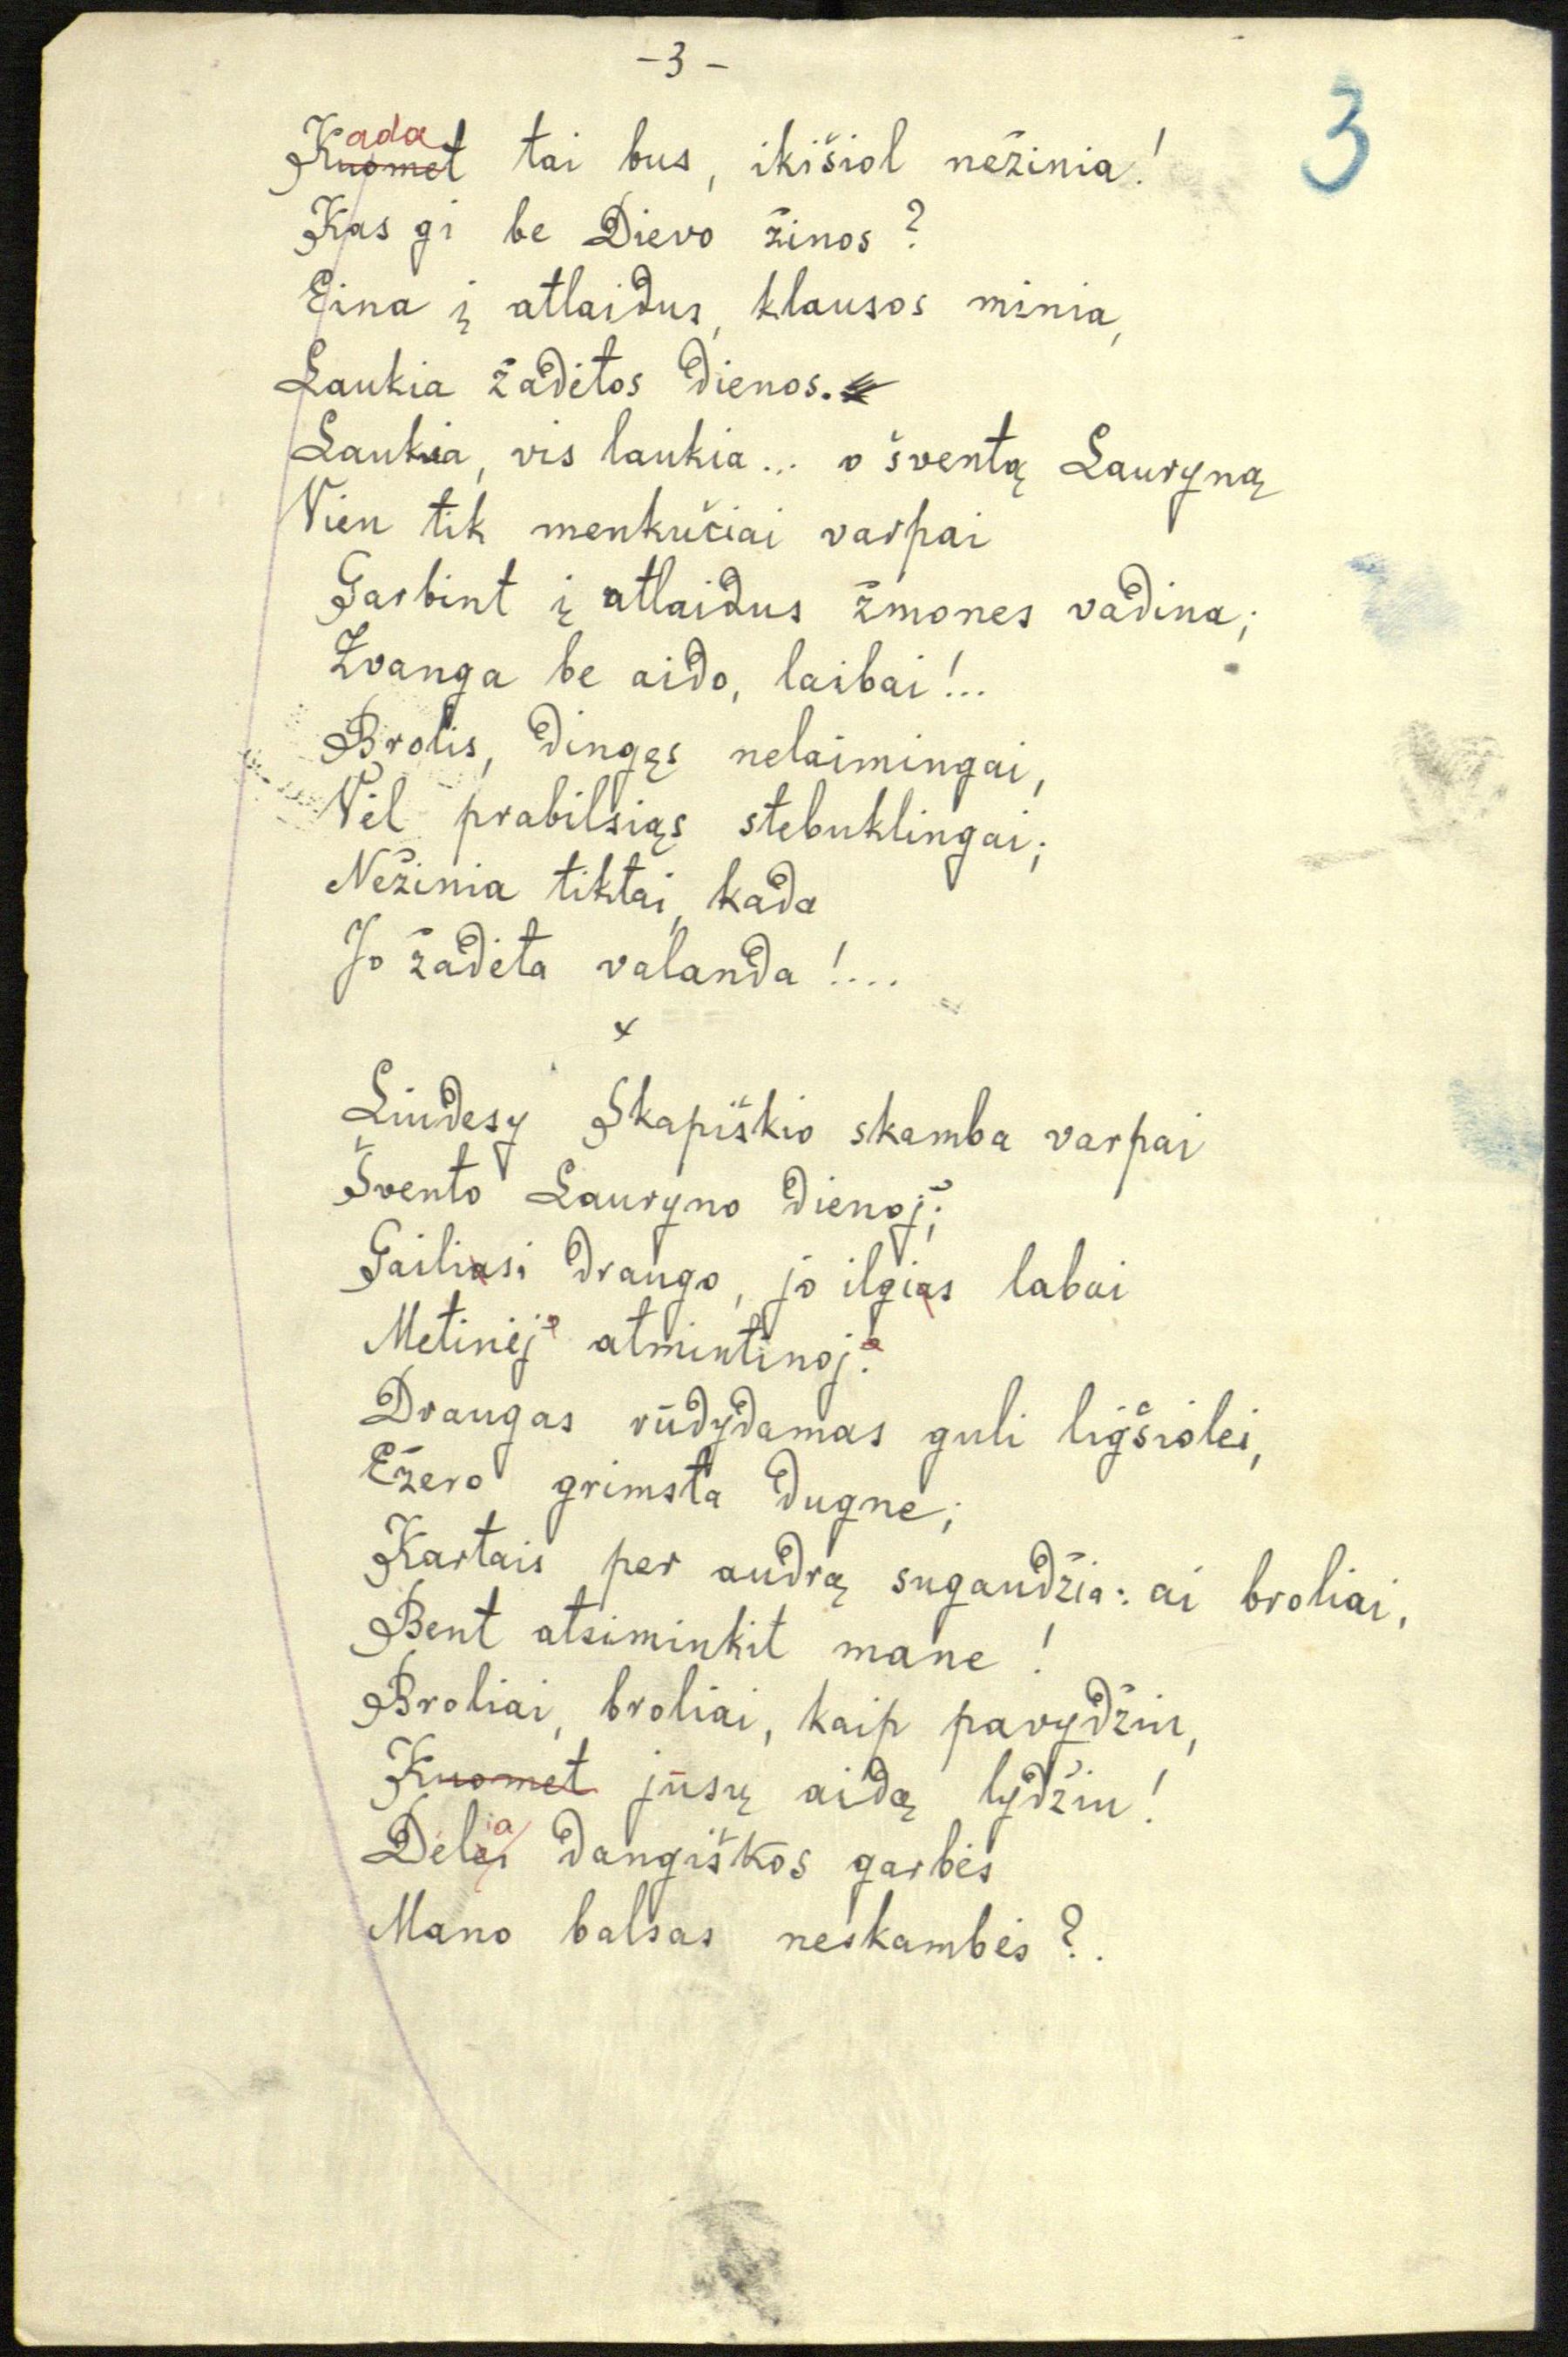 -3-
3
Kuomet ada tai bus, ikišiol nežinia!
Kas gi be Dievo žinos?
Eina į atlaidus, klausos minia,
Laukia žadėtos dienos.
Laukia, vis laukia... o šventą Lauryną
Vien tik menkučiai varpai
Garbint į atlaidus žmones vadina;
Žvanga be aido, laibai!...
Brolis, dingęs nelaimingai,
Vėl prabilsiąs stebuklingai;
Nežinia tiktai, kada
Jo žadėta valanda!....
x
Liūdesy Skapiškio skamba varpai
Švento Lauryno dienoj;
Gailiasi draugo, jo ilgias labai
Metinėj atmintinoj.
Draugas rūdydamas guli ligšiolei,
Ežero grimsta dugne;
Kartais per audrą sugaudžia: ai broliai,
Bent atsiminkit mane!
Broliai, broliai, kaip pavydžiu,
Kuomet jūsų aidą lydžiu!
Dėlei a dangiškos garbės
Mano balsas neskambės?.